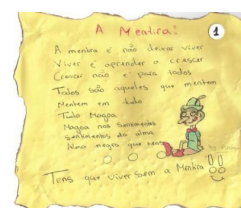 A Mentira:
1
A mentira é não deixar viver
Viver é aprender a crescer
Crescer não é para todos
Todos são aqueles que mentem
Mentem em tudo
Tudo Magoa
Magoa nos Sentimentos
sentimentos da alma
Alma negra que tem
Tens que viver sem a Mentira !!